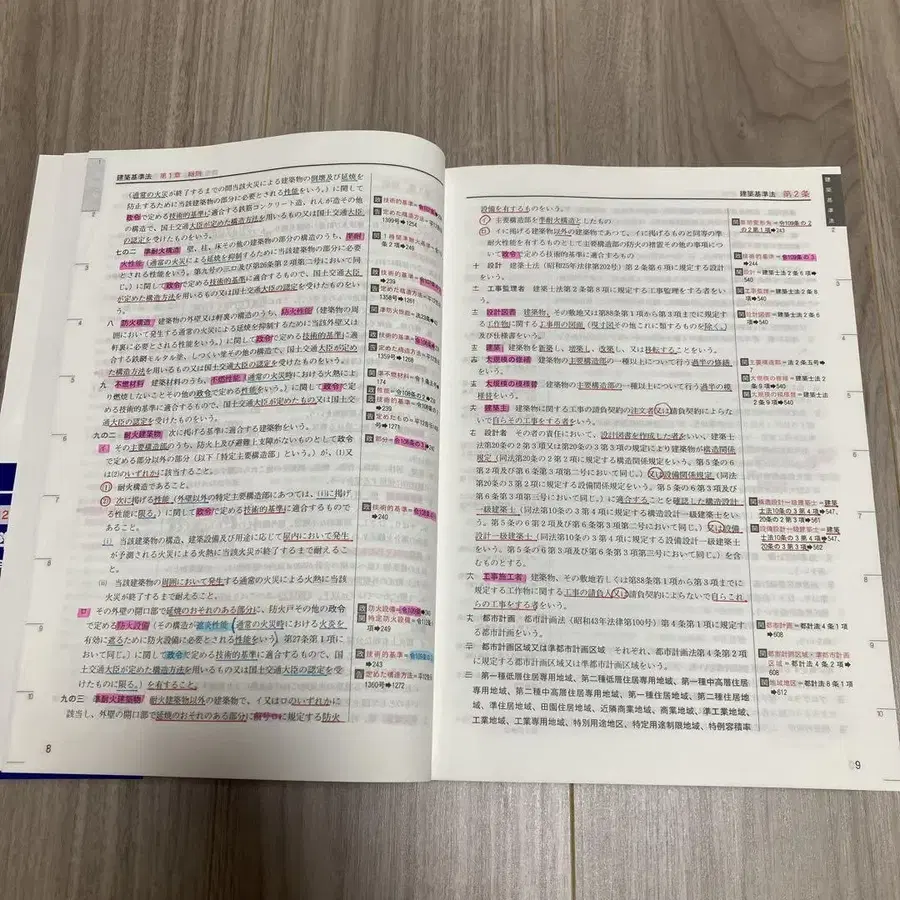 建築基準法 第1章 総則
(通常の火災が終了するまでの間当該火災による建築物の倒壊及び延焼を
防止するために当該建築物の部分に必要とされる性能をいう。)に関して
政令で定める技術的基準に適合する鉄筋コンクリート造、れんが造その他
の構造で、国土交通大臣が定めた構造方法を用いるもの又は国土交通大臣
の認定を受けたものをいう。
七の二 準耐火構造 壁、柱、床その他の建築物の部分の構造のうち、準耐
火性能(通常の火災による延焼を抑制するために当該建築物の部分に必要
とされる性能をいう。第九号の三ロ及び第26条第2項第二号において同
じ。)に関して政令で定める技術的基準に適合するもので、国土交通大臣
が定めた構造方法を用いるもの又は国土交通大臣の認定を受けたものをい
う。
八 防火構造 建築物の外壁又は軒裏の構造のうち、防火性能(建築物の周
囲において発生する通常の火災による延焼を抑制するために当該外壁又は
軒裏に必要とされる性能をいう。)に関して政令で定める技術的基準に適
合する鉄網モルタル塗、しつくい塗その他の構造で、国土交通大臣が定め
た構造方法を用いるもの又は国土交通大臣の認定を受けたものをいう。
九 不燃材料 建築材料のうち、不燃性能(通常の火災時における火熱によ
り燃焼しないことその他の政令で定める性能をいう。)に関して政令で定
める技術的基準に適合するもので、国土交通大臣が定めたもの又は国土交通
大臣の認定を受けたものをいう。
九の二 耐火建築物 次に掲げる基準に適合する建築物をいう。
イ その主要構造部のうち、防火上及び避難上支障がないものとして政令
で定める部分以外の部分(以下「特定主要構造部」という。)が、(1)又
は(2)のいずれかに該当すること。
(1) 耐火構造であること。
(2) 次に掲げる性能(外壁以外の特定主要構造部にあつては、(i)に掲げ
る性能に限る。)に関して政令で定める技術的基準に適合するもので
あること。
(i) 当該建築物の構造、建築設備及び用途に応じて屋内において発生
が予測される火災による火熱に当該火災が終了するまで耐えるこ
と。
(ii) 当該建築物の周囲において発生する通常の火災による火熱に当該
火災が終了するまで耐えること。
ロ その外壁の開口部で延焼のおそれのある部分に、防火戸その他の政令
で定める防火設備(その構造が遮炎性能(通常の火災時における火炎を
有効に遮るために防火設備に必要とされる性能をいう。第27条第1項に
おいて同じ。)に関して政令で定める技術的基準に適合するもので、国
土交通大臣が定めた構造方法を用いるもの又は国土交通大臣の認定を受
けたものに限る。)を有すること。
九の三 準耐火建築物 耐火建築物以外の建築物で、イ又はロのいずれかに
該当し、外壁の開口部で延焼のおそれのある部分に前号ロに規定する防火
8
建築基準法 第2条
設備を有するものをいう。
イ 主要構造部を準耐火構造としたもの
ロ イに掲げる建築物以外の建築物であつて、イに掲げるものと同等の準
耐火性能を有するものとして主要構造部の防火の措置その他の事項につ
いて政令で定める技術的基準に適合するもの
十 設計 建築士法(昭和25年法律第202号)第2条第6項に規定する設計
をいう。
十一 工事監理者 建築士法第2条第8項に規定する工事監理をする者をい
う。
十二 設計図書 建築物、その敷地又は第88条第1項から第3項までに規定す
る工作物に関する工事用の図面(現寸図その他これに類するものを除く。)
及び仕様書をいう。
十三 建築 建築物を新築し、増築し、改築し、又は移転することをいう。
十四 大規模の修繕 建築物の主要構造部の一種以上について行う過半の修繕
をいう。
十五 大規模の模様替 建築物の主要構造部の一種以上について行う過半の模
様替をいう。
十六 建築主 建築物に関する工事の請負契約の注文者又は請負契約によらな
いで自らその工事をする者をいう。
十七 設計者 その者の責任において、設計図書を作成した者をいい、建築士
法第20条の2第3項又は第20条の3第3項の規定により建築物が構造関係
規定(同法第20条の2第2項に規定する構造関係規定をいう。第5条の6
第2項及び第6条第3項第二号において同じ。)又は設備関係規定(同法
第20条の3第2項に規定する設備関係規定をいう。第5条の6第3項及び
第6条第3項第三号において同じ。)に適合することを確認した構造設計
一級建築士(同法第10条の3第4項に規定する構造設計一級建築士をい
う。第5条の6第2項及び第6条第3項第二号において同じ。)又は設備
設計一級建築士(同法第10条の3第4項に規定する設備設計一級建築士を
いう。第5条の6第3項及び第6条第3項第三号において同じ。)を含
むものとする。
十八 工事施工者 建築物、その敷地若しくは第88条第1項から第3項までに
規定する工作物に関する工事の請負人又は請負契約によらないで自らこれ
らの工事をする者をいう。
十九 都市計画 都市計画法(昭和43年法律第100号)第4条第1項に規定す
る都市計画をいう。
二十 都市計画区域又は準都市計画区域 それぞれ、都市計画法第4条第2項
に規定する都市計画区域又は準都市計画区域をいう。
二十一 第一種低層住居専用地域、第二種低層住居専用地域、第一種中高層住居
専用地域、第二種中高層住居専用地域、第一種住居地域、第二種住居地
域、準住居地域、田園住居地域、近隣商業地域、商業地域、準工業地域、
工業地域、工業専用地域、特別用途地区、特定用途制限地域、特例容積率
9